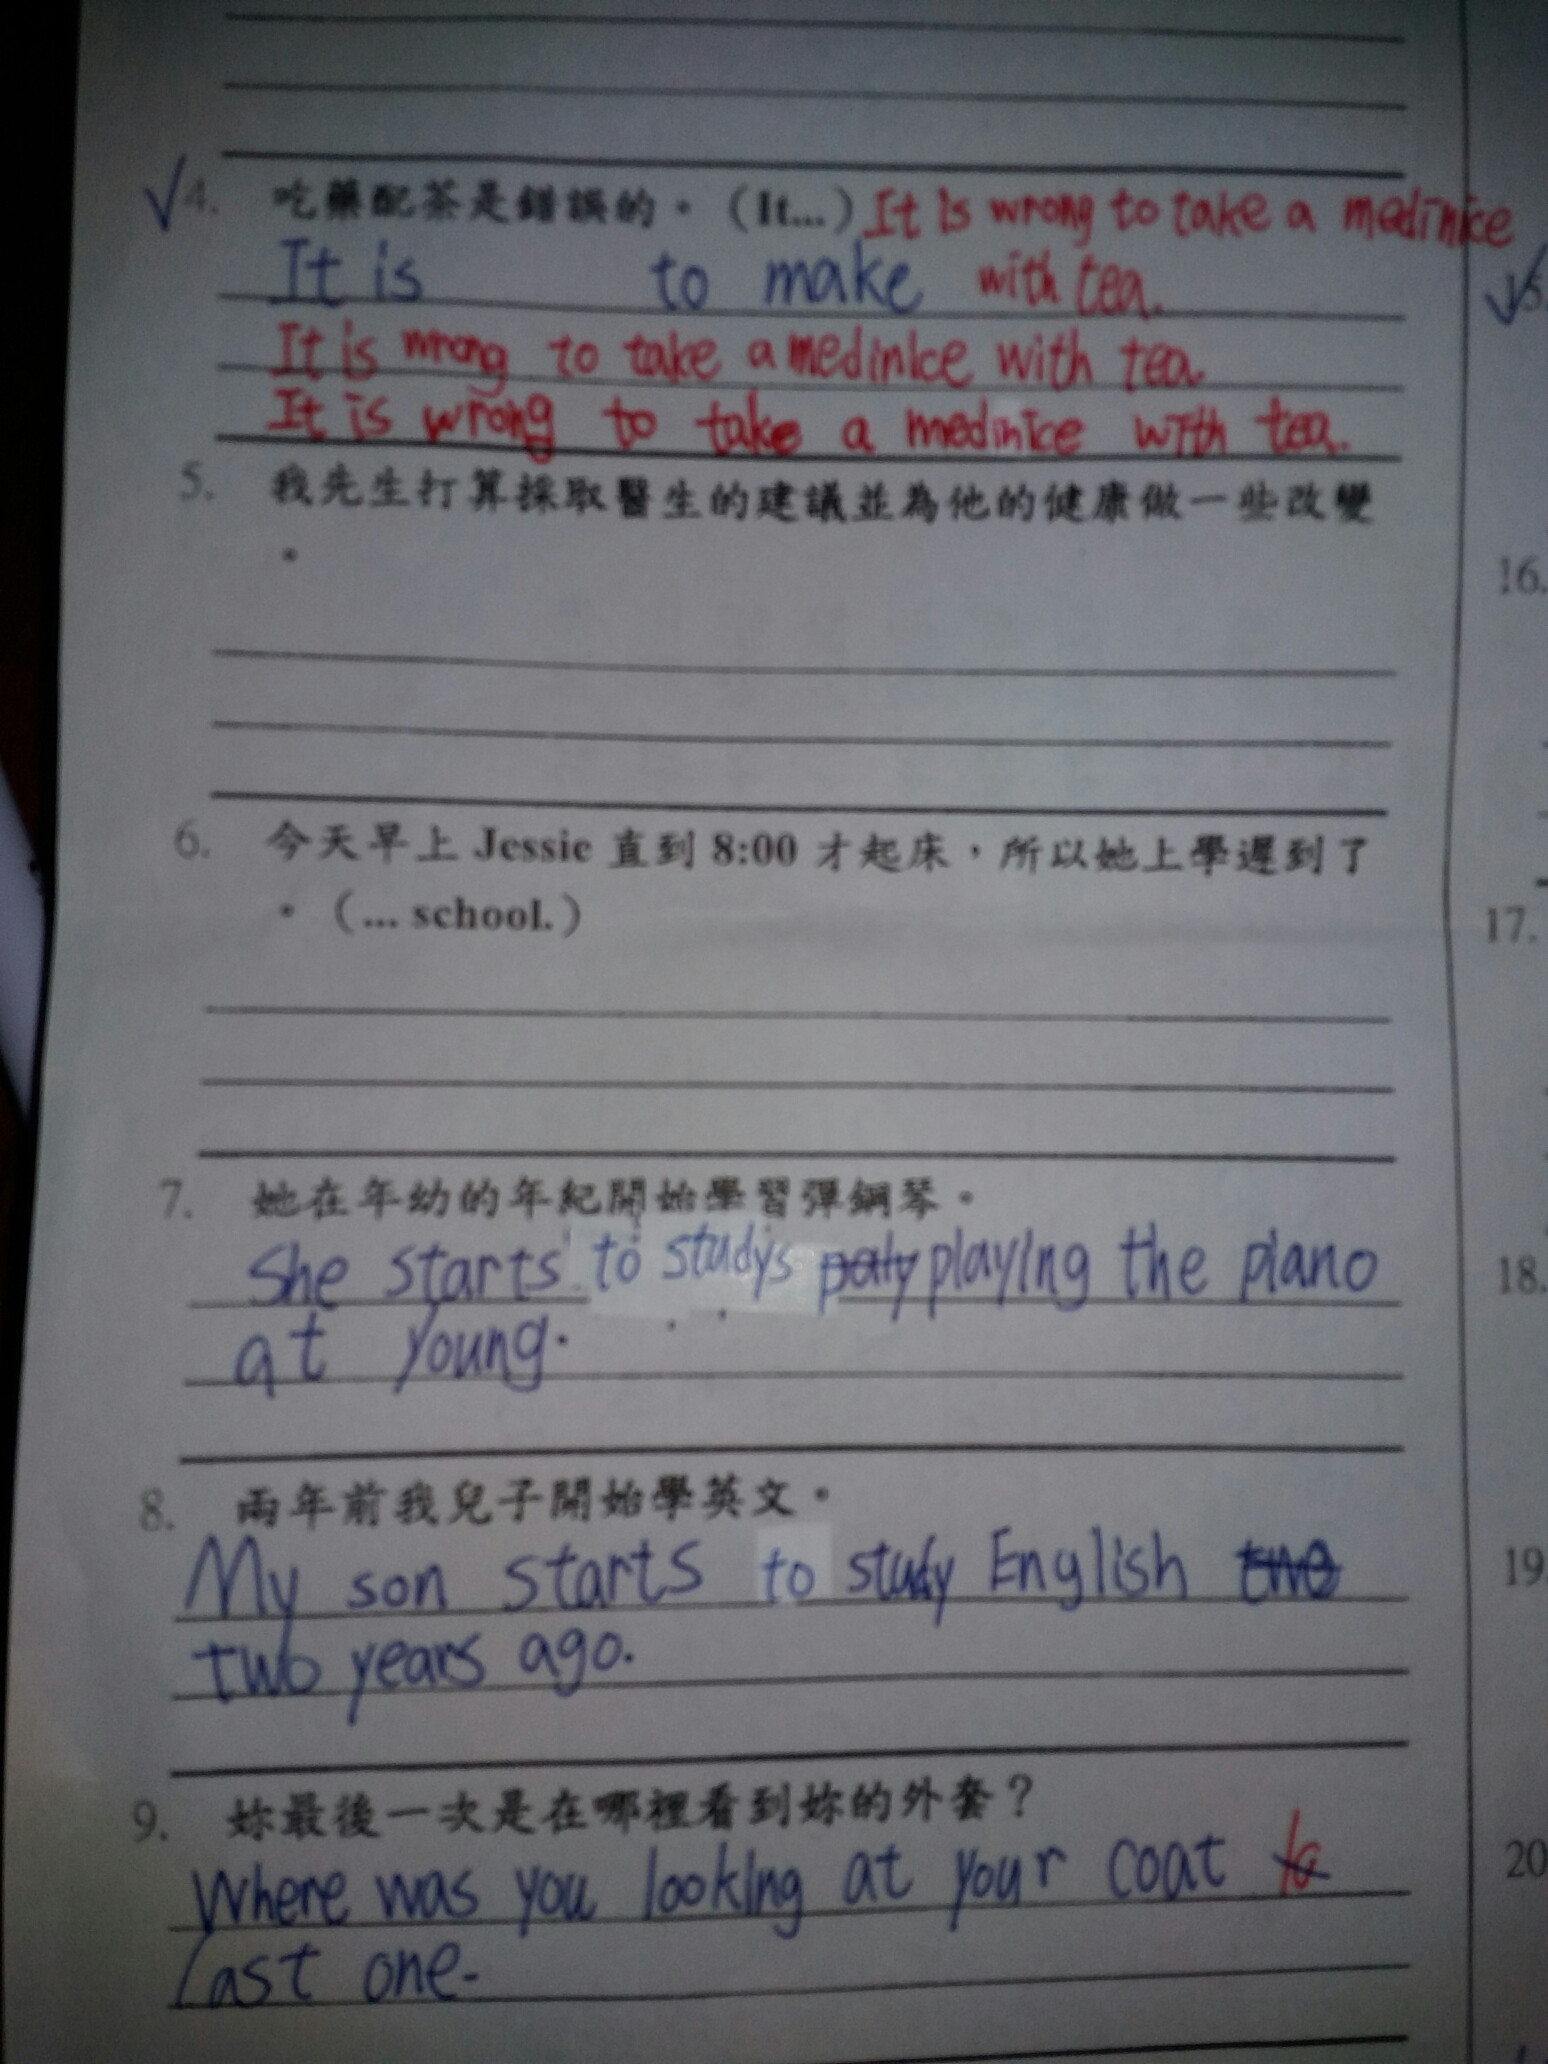 √4. 吃藥配茶是錯誤的。(It...) It is wrong to take a medinice
It is to make with tea.
It is wrong to take a medinice with tea.
It is wrong to take a medinice with tea.
5. 我先生打算採取醫生的建議並為他的健康做一些改變
。
6. 今天早上 Jessie 直到 8:00 才起床，所以她上學遲到了
。(... school.)
7. 她在年幼的年紀開始學習彈鋼琴。
She starts to studys paly playing the piano
at young.
8. 兩年前我兒子開始學英文。
My son starts to study English two
two years ago.
9. 妳最後一次是在哪裡看到妳的外套？
Where was you looking at your coat la
last one.
√5.
16.
17.
18.
19
20